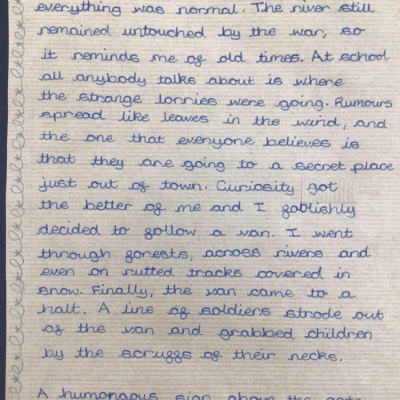 everything was normal. The river still
remained untouched by the war, so
it reminds me of old times. At school
all anybody talks about is where
the strange lorries were going. Rumours
spread like leaves in the wind, and
the one that everyone believes is
that they are going to a secret place
just out of town. Curiosity got
the better of me and I foolishly
decided to follow a van. I went
through forests, across rivers and
even on rutted tracks covered in
snow. Finally, the van came to a
halt. A line of soldiers strode out
of the van and grabbed children
by the scruffs of their necks.
A humongous sign above the gate